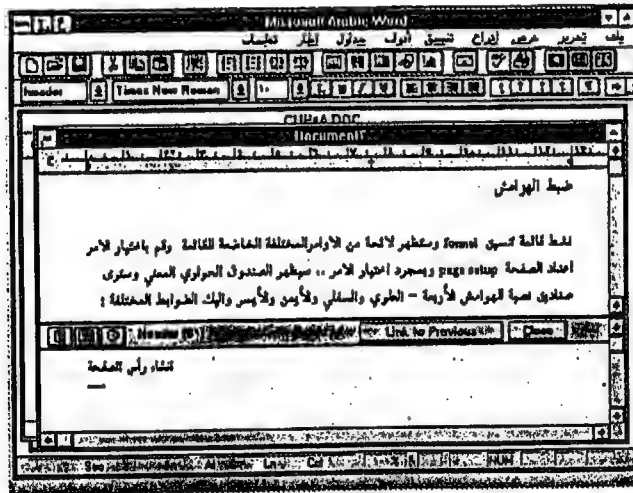 Microsoft Arabic Word
ملف تحرير عرض إدراج تنسيق أدوات جداول إطار تعليمات
header Times New Roman ١٠
CUP4A.DOC
Document1
ضبط الهوامش
نشط قائمة تنسيق format وستظهر لائحة من الأوامر المختلفة الخاضعة للقائمة وقم باختيار الامر
اعداد الصفحة page setup وبمجرد اختيار الامر .. سيظهر الصندوق الحواري المعني وسترى
صناديق نصية للهوامش الأربعة - العلوي والسفلي والأيمن والأيسر واليك الضوابط المختلفة :
Header (S) Link to Previous Close
انشاء رأس الصفحة
Sec Ln Col NUM